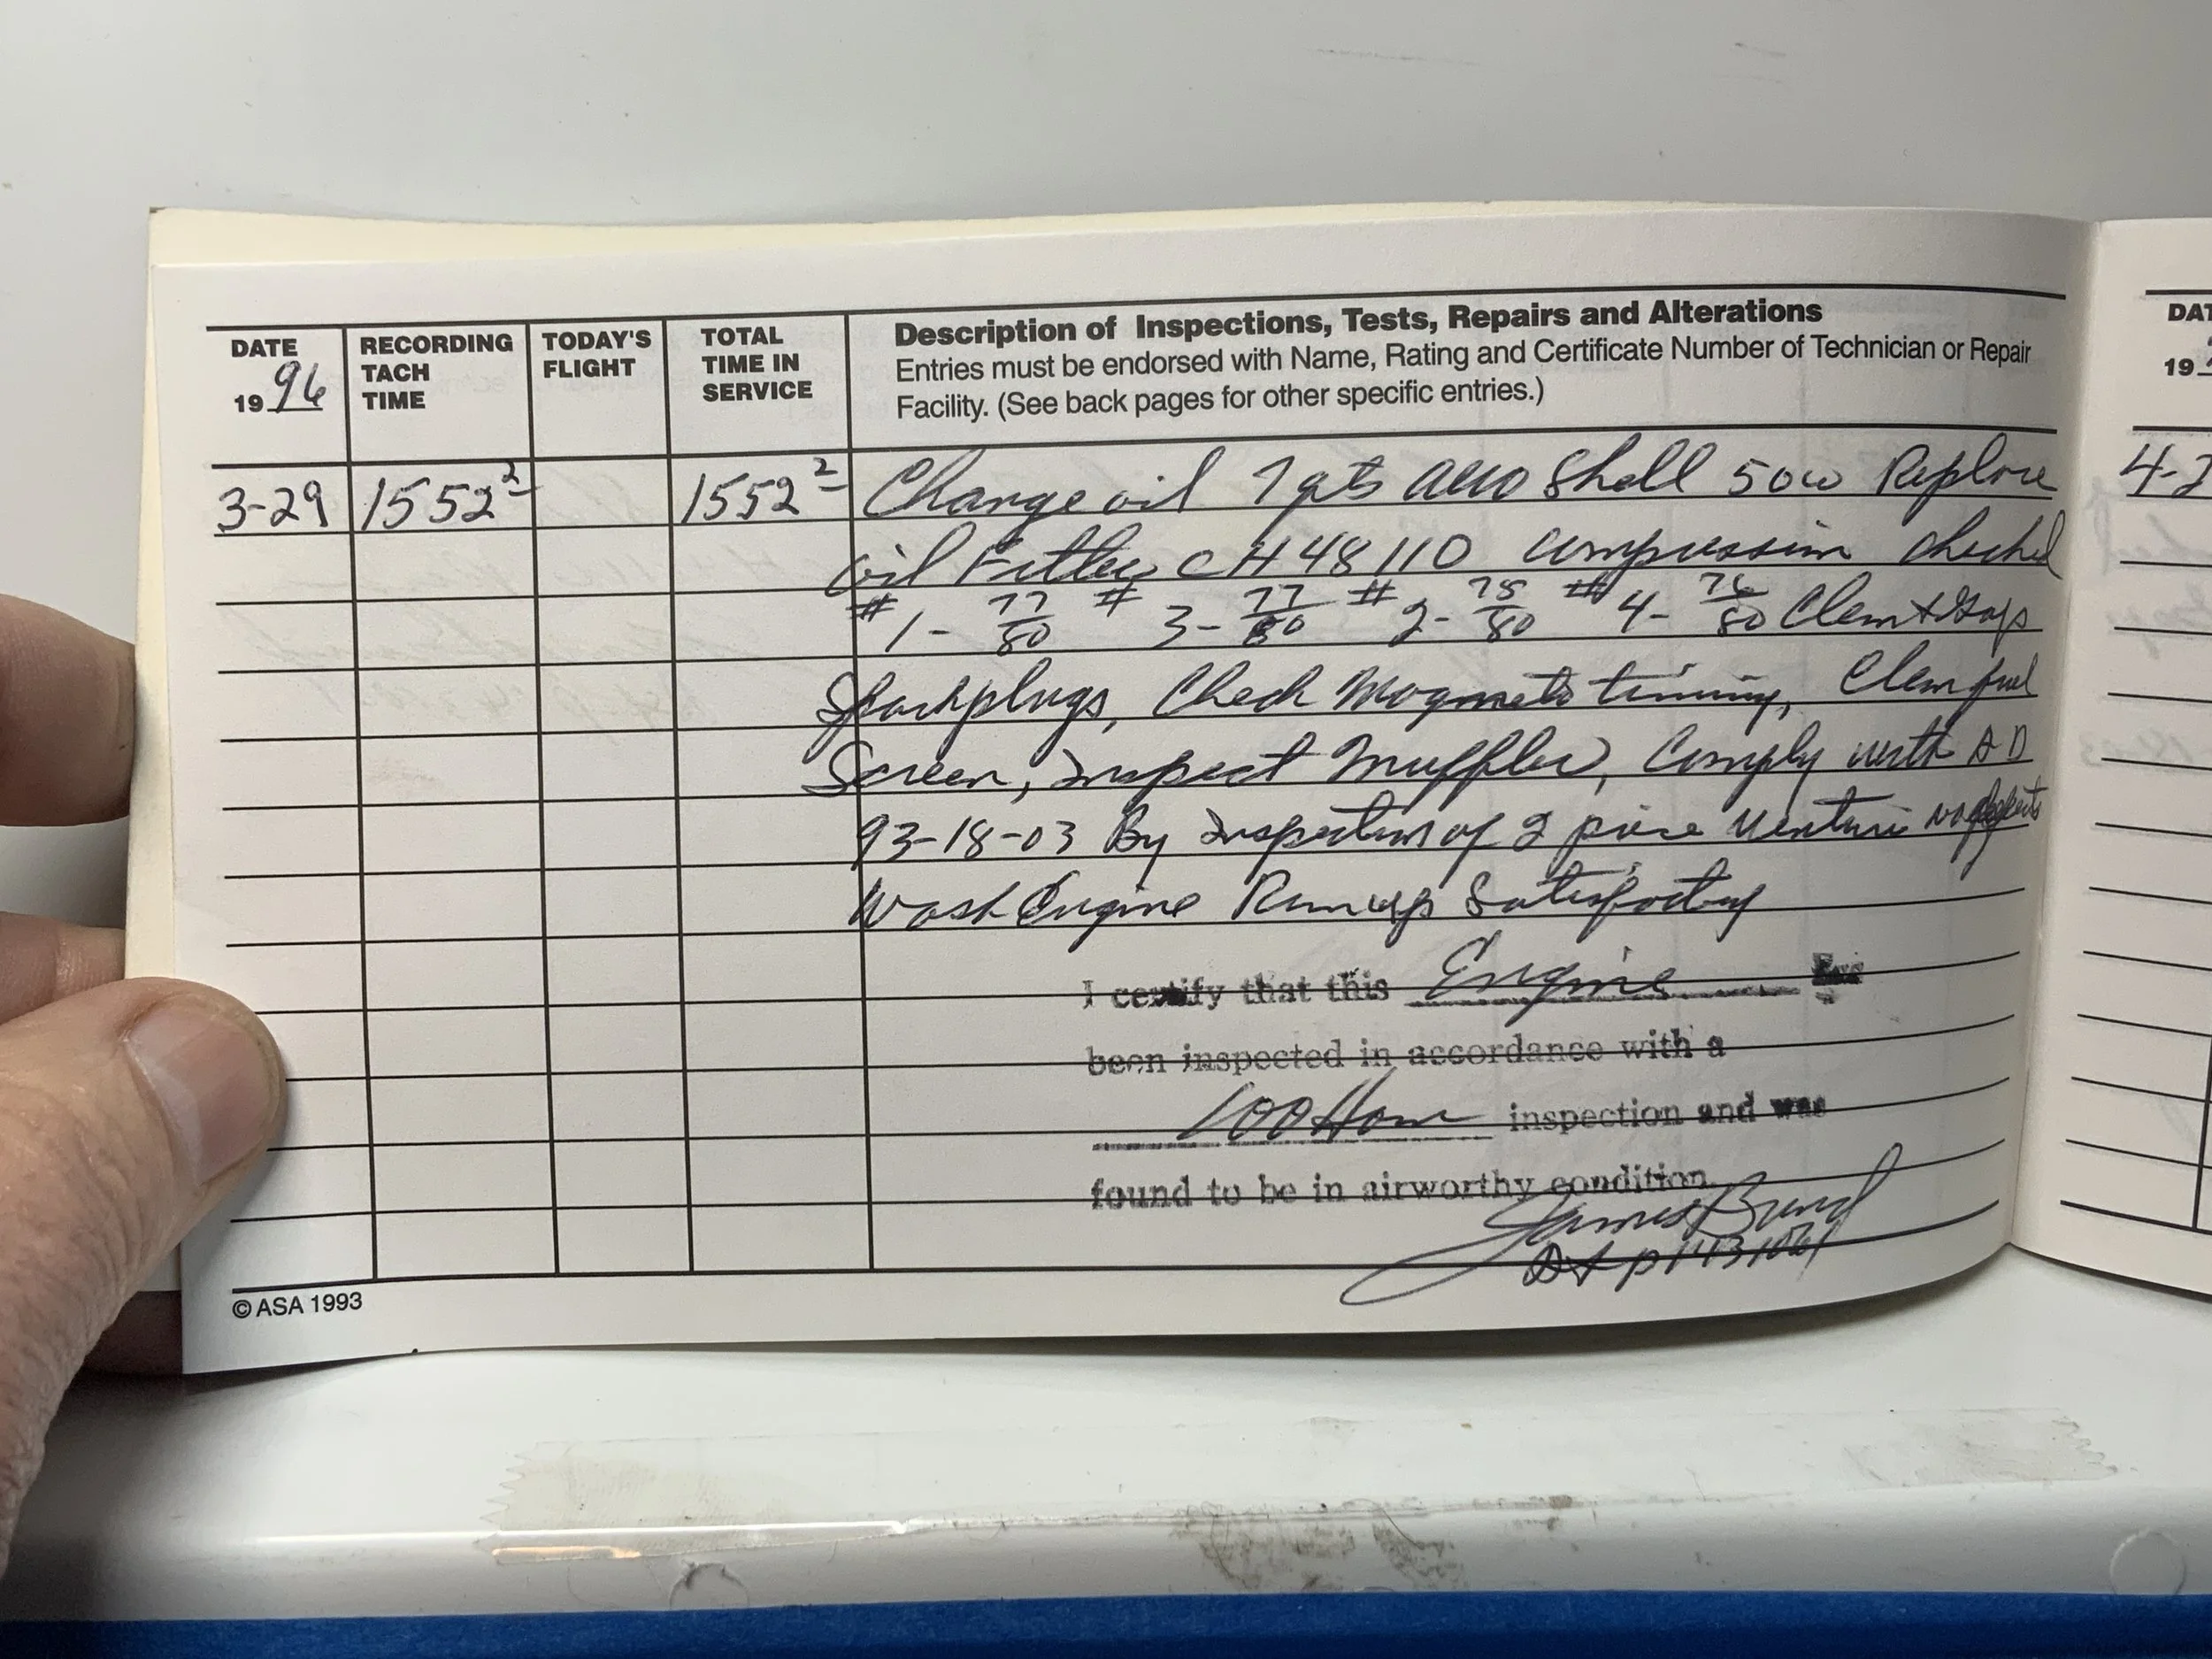 DATE
19 96
RECORDING
TACH
TIME
TODAY'S
FLIGHT
TOTAL
TIME IN
SERVICE
Description of Inspections, Tests, Repairs and Alterations
Entries must be endorsed with Name, Rating and Certificate Number of Technician or Repair
Facility. (See back pages for other specific entries.)
3-29 1552² 1552² Change oil 7 qts Aero Shell 50w Replace
oil Filter CH48110 compression checked
#1-77/80 #3-77/80 #2-75/80 #4-76/80 Clean & Gap
Sparkplugs, Check Magneto timing, Clean fuel
Screen, Inspect Muffler, Comply with AD
93-18-03 By Inspection of 2 piece Venturi no
Wash Engine Runup Satisfactory
I certify that this Engine has
been inspected in accordance with a
100 Hour inspection and was
found to be in airworthy condition.
James
A&P
© ASA 1993
DAT
19
4-2